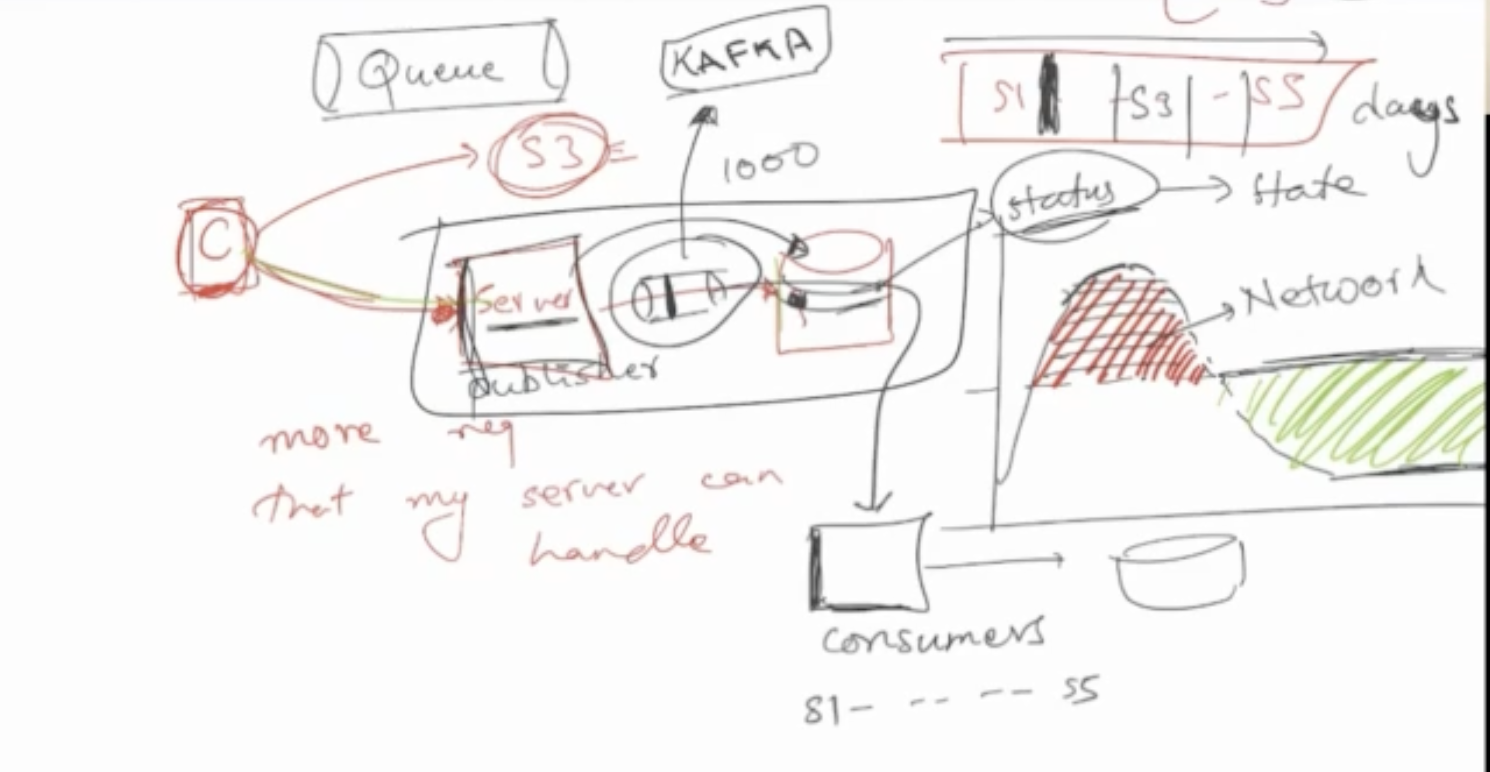 Queue
KAFKA
S1
S3
-
S5
days
S3
1000
C
status
state
Server
publisher
Netword
more req
that my server can
handle
consumers
S1- -- -- S5